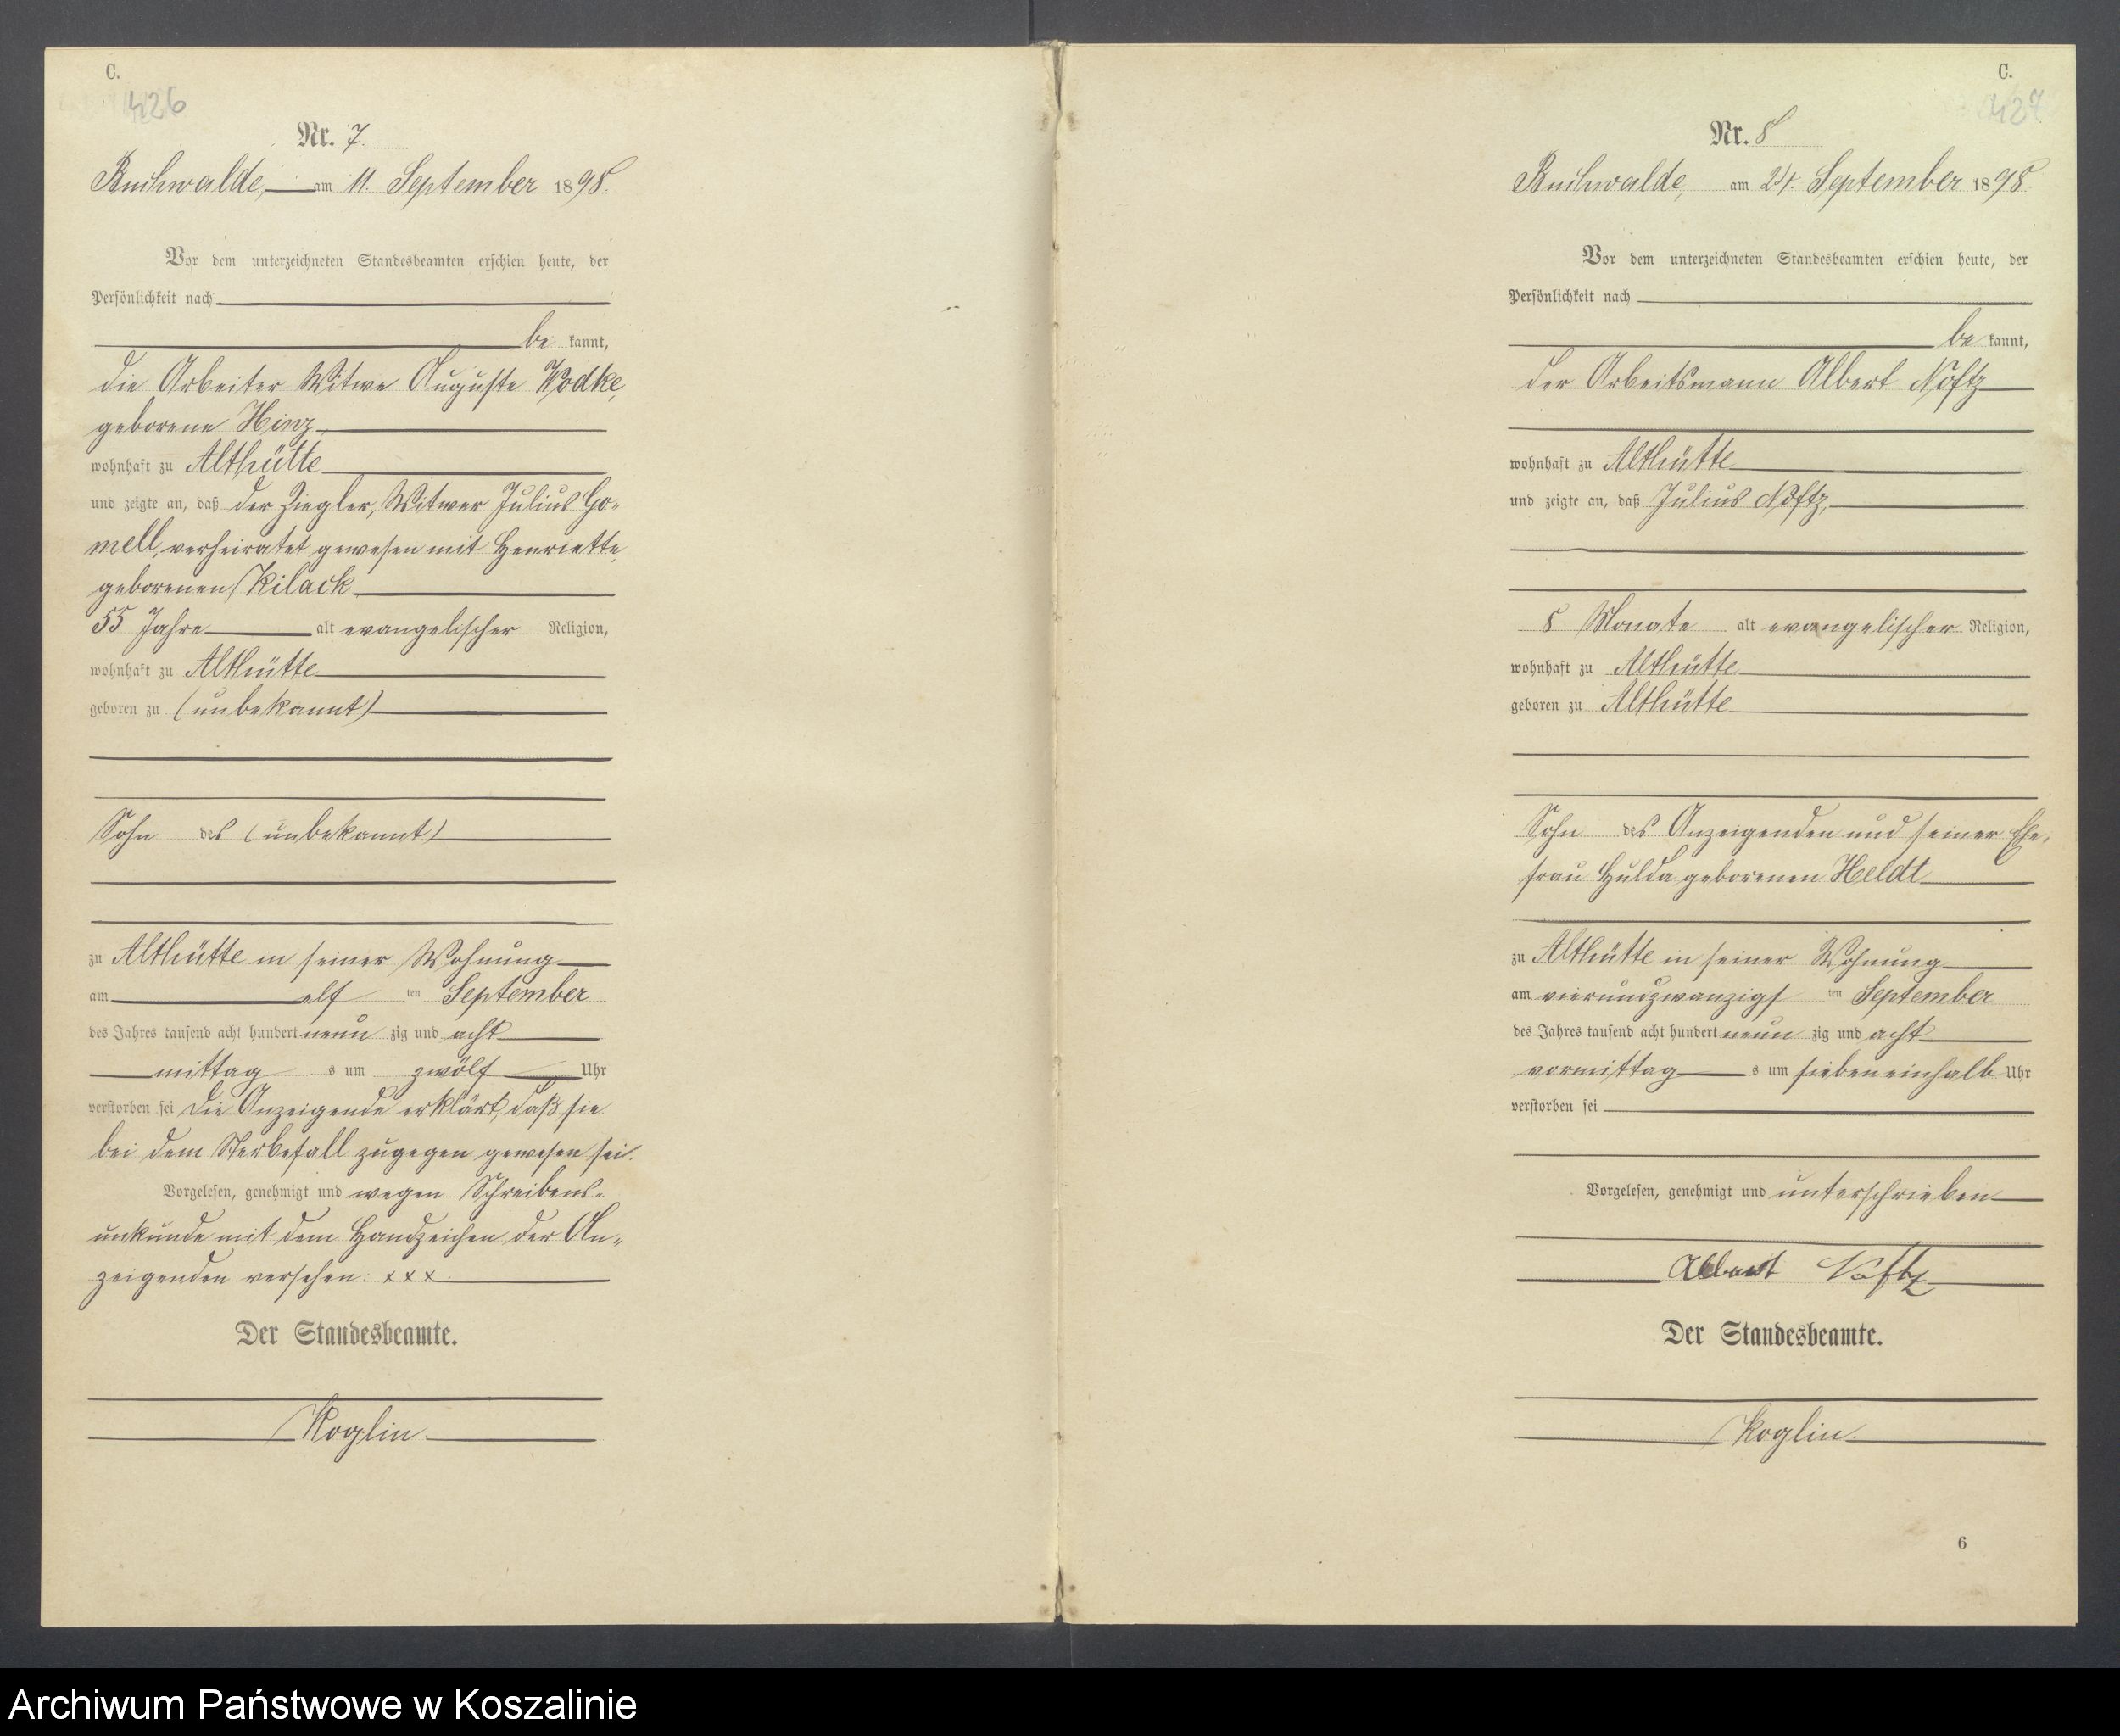 C.
426
Nr. 7.
Buchwalde, am 11. September 1898.
Vor dem unterzeichneten Standesbeamten erschien heute, der
Persönlichkeit nach
be kannt,
die Arbeiter Witwe Auguste Wodke,
geborene Hinz,
wohnhaft zu Althütte
und zeigte an, daß der Ziegler, Witwer Julius Go-
mell, verheiratet gewesen mit Henriette,
geborenen Kilack
55 Jahre alt evangelischer Religion,
wohnhaft zu Althütte
geboren zu (unbekannt)
Sohn des (unbekannt)
zu Althütte in seiner Wohnung
am elf ten September
des Jahres tausend acht hundert neun zig und acht
mittag s um zwölf Uhr
verstorben sei die Anzeigende erklärt, daß sie
bei dem Sterbefall zugegen gewesen sei.
Vorgelesen, genehmigt und wegen Schreibens-
unkunde mit dem Handzeichen der An-
zeigenden versehen: xxx.
Der Standesbeamte.
Koglin.
C.
427
Nr. 8
Buchwalde, am 24. September 1898.
Vor dem unterzeichneten Standesbeamten erschien heute, der
Persönlichkeit nach
be kannt,
der Arbeitsmann Albert Noftz
wohnhaft zu Althütte
und zeigte an, daß Julius Noftz,
8 Monate alt evangelischer Religion,
wohnhaft zu Althütte
geboren zu Althütte
Sohn des Anzeigenden und seiner Ehe-
frau Hulda geborenen Heldt
zu Althütte in seiner Wohnung
am vierundzwanzigs ten September
des Jahres tausend acht hundert neun zig und acht
vormittag s um siebeneinhalb Uhr
verstorben sei
Vorgelesen, genehmigt und unterschrieben
Albert Noftz
Der Standesbeamte.
Koglin.
6
Archiwum Państwowe w Koszalinie